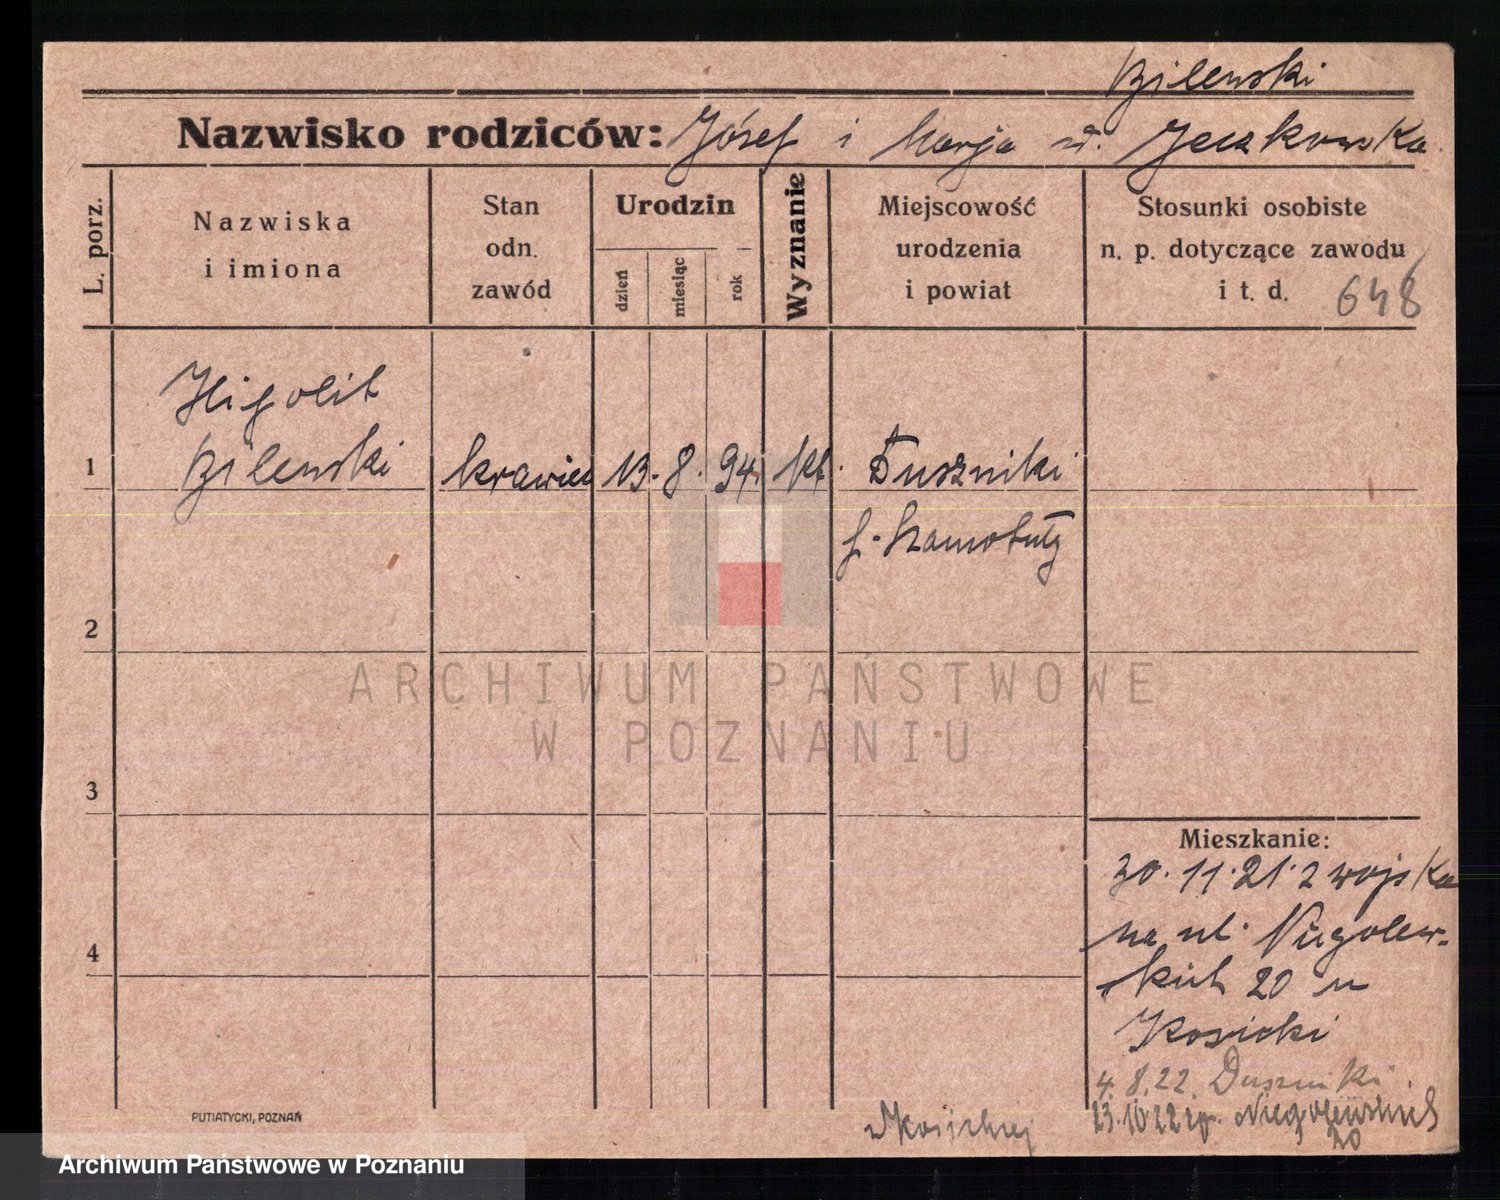 Bilewski
Nazwisko rodziców: Józef i Marja z d. Jeczkowska
L. porz.
Nazwiska
i imiona
Stan
odn.
zawód
Urodzin
dzień
miesiąc
rok
Wyznanie
Miejscowość
urodzenia
i powiat
Stosunki osobiste
n. p. dotyczące zawodu
i t. d. 648
Hipolit
1 Bilewski krawiec 13. 8. 94. kt. Duszniki
p. Szamotuły
2
3
4
Mieszkanie:
30.11.21 z wojska
na ul. Niegolew-
skich 20 u
Kosicki
4.8.22. Duszniki
23.10.22 Niegolewskich
20
PUTIATYCKI, POZNAŃ
ARCHIWUM PAŃSTWOWE
W POZNANIU
Archiwum Państwowe w Poznaniu